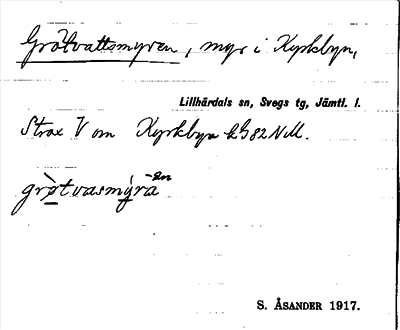 Grötvattsmyren, myr i Kyrkbyn,
Lillhärdals sn, Svegs tg, Jämtl. l.
Strax V om Kyrkbyn
grò̱tvasmýra -en
S. ÅSANDER 1917.